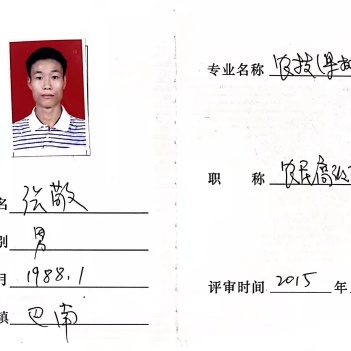 名 张敬
别 男
月 1988.1
镇 巴南
专业名称 农技(果
职 称 农民高级
评审时间 2015 年